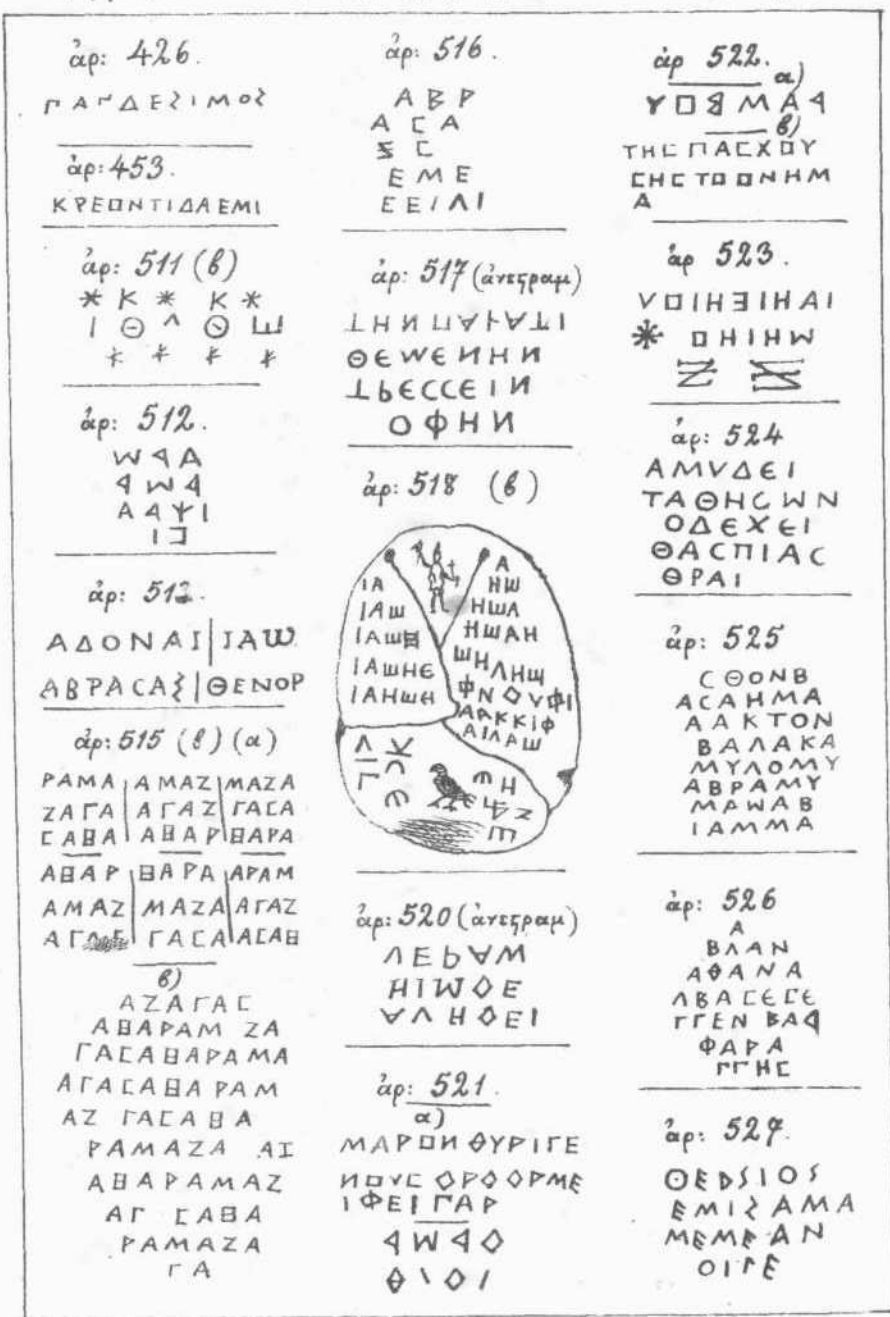 ἀρ: 426.
ΠΑΝΔΕΣΙΜΟΣ
ἀρ: 453.
ΚΡΕΟΝΤΙΔΑΕΜΙ
ἀρ: 511 (β)
* Κ * Κ *
Ι Θ Λ Θ Ш
ἀρ: 512.
Ѡ Α Α
Α Ѡ Α
Α Α Ψ Ι
ἀρ: 513.
ΑΔΟΝΑΙ | ΙΑѠ
ΑΒΡΑСΑΣ | ΘΕΝΟΡ
ἀρ: 515 (β) (α)
ΡΑΜΑ | ΑΜΑΖ | ΜΑΖΑ
ΖΑΓΑ | ΑΓΑΖ | ΓΑСΑ
СΑΒΑ | ΑΒΑΡ | ΒΑΡΑ
ΑΒΑΡ | ΒΑΡΑ | ΑΡΑΜ
ΑΜΑΖ | ΜΑΖΑ | ΑΓΑΖ
ΓΑСΑ | ΑСΑΒ
β)
ΑΖΑΓΑС
ΑΒΑΡΑΜ ΖΑ
ΓΑСΑΒΑΡΑΜΑ
ΑΓΑСΑΒΑΡΑΜ
ΑΖ ΓΑСΑΒΑ
ΡΑΜΑΖΑ ΑΙ
ΑΒΑΡΑΜΑΖ
ΑΓ СΑΒΑ
ΡΑΜΑΖΑ
ΓΑ
ἀρ: 516.
ΑΒΡ
ΑСΑ
Ξ С
ΕΜΕ
ΕΕΙΛΙ
ἀρ: 517 (ἀνεστραμ)
ΘΕѠΕΝΗΝ
ΟΦΗΝ
ἀρ: 518 (β)
ΙΑ
ΙΑѠ
ΙΑѠΗ
ΙΑѠΗΕ
ΙΑΗѠΗ
Α
ΗѠ
ΗѠΑ
ΗѠΑΗ
ѠΗΛΗѠ
ΦΝΟΥΦΙ
ΑΑΚΚΙΦ
ΑΙΛΑѠ
ἀρ: 520 (ἀνεστραμ)
ΗΙѠΟΕ
ἀρ: 521
α)
ΜΑΡΟΝ ΘΥΡΙΓΕ
ΝΟΥС ΟΡΟΟΡΜΕ
ΙΦΕΙ ΓΑΡ
Α Ѡ Α Ο
Θ Ι Ο Ι
ἀρ 522.
α)
Υ Ο Β Μ Α Α
β)
ΤΗС ΠΑСΧΟΥ
СΗС ΤΟ ΟΝΗΜ
Α
ἀρ 523.
ΥΟΙΗΕΙΗΑΙ
ΟΗΙΗѠ
ἀρ: 524
ΑΜΥΔΕΙ
ΤΑΘΗСѠΝ
ΟΔΕΧΕΙ
ΘΑСΠΙΑС
ΘΡΑΙ
ἀρ: 525
СΘΟΝΒ
ΑСΑΗΜΑ
ΑΑΚΤΟΝ
ΒΑΛΑΚΑ
ΜΥΛΟΜΥ
ΑΒΡΑΜΥ
ΜΑѠΑΒ
ΙΑΜΜΑ
ἀρ: 526
Α
ΒΛΑΝ
ΑΘΑΝΑ
ΛΒΑСΕСΕ
ΓΓΕΝ ΒΑΑ
ΦΑΡΑ
ΓΓΗС
ἀρ: 527.
ΘΕΡSΙΟS
ΕΜΙΣΑΜΑ
ΜΕΜΕΑΝ
ΟΙΓΕ